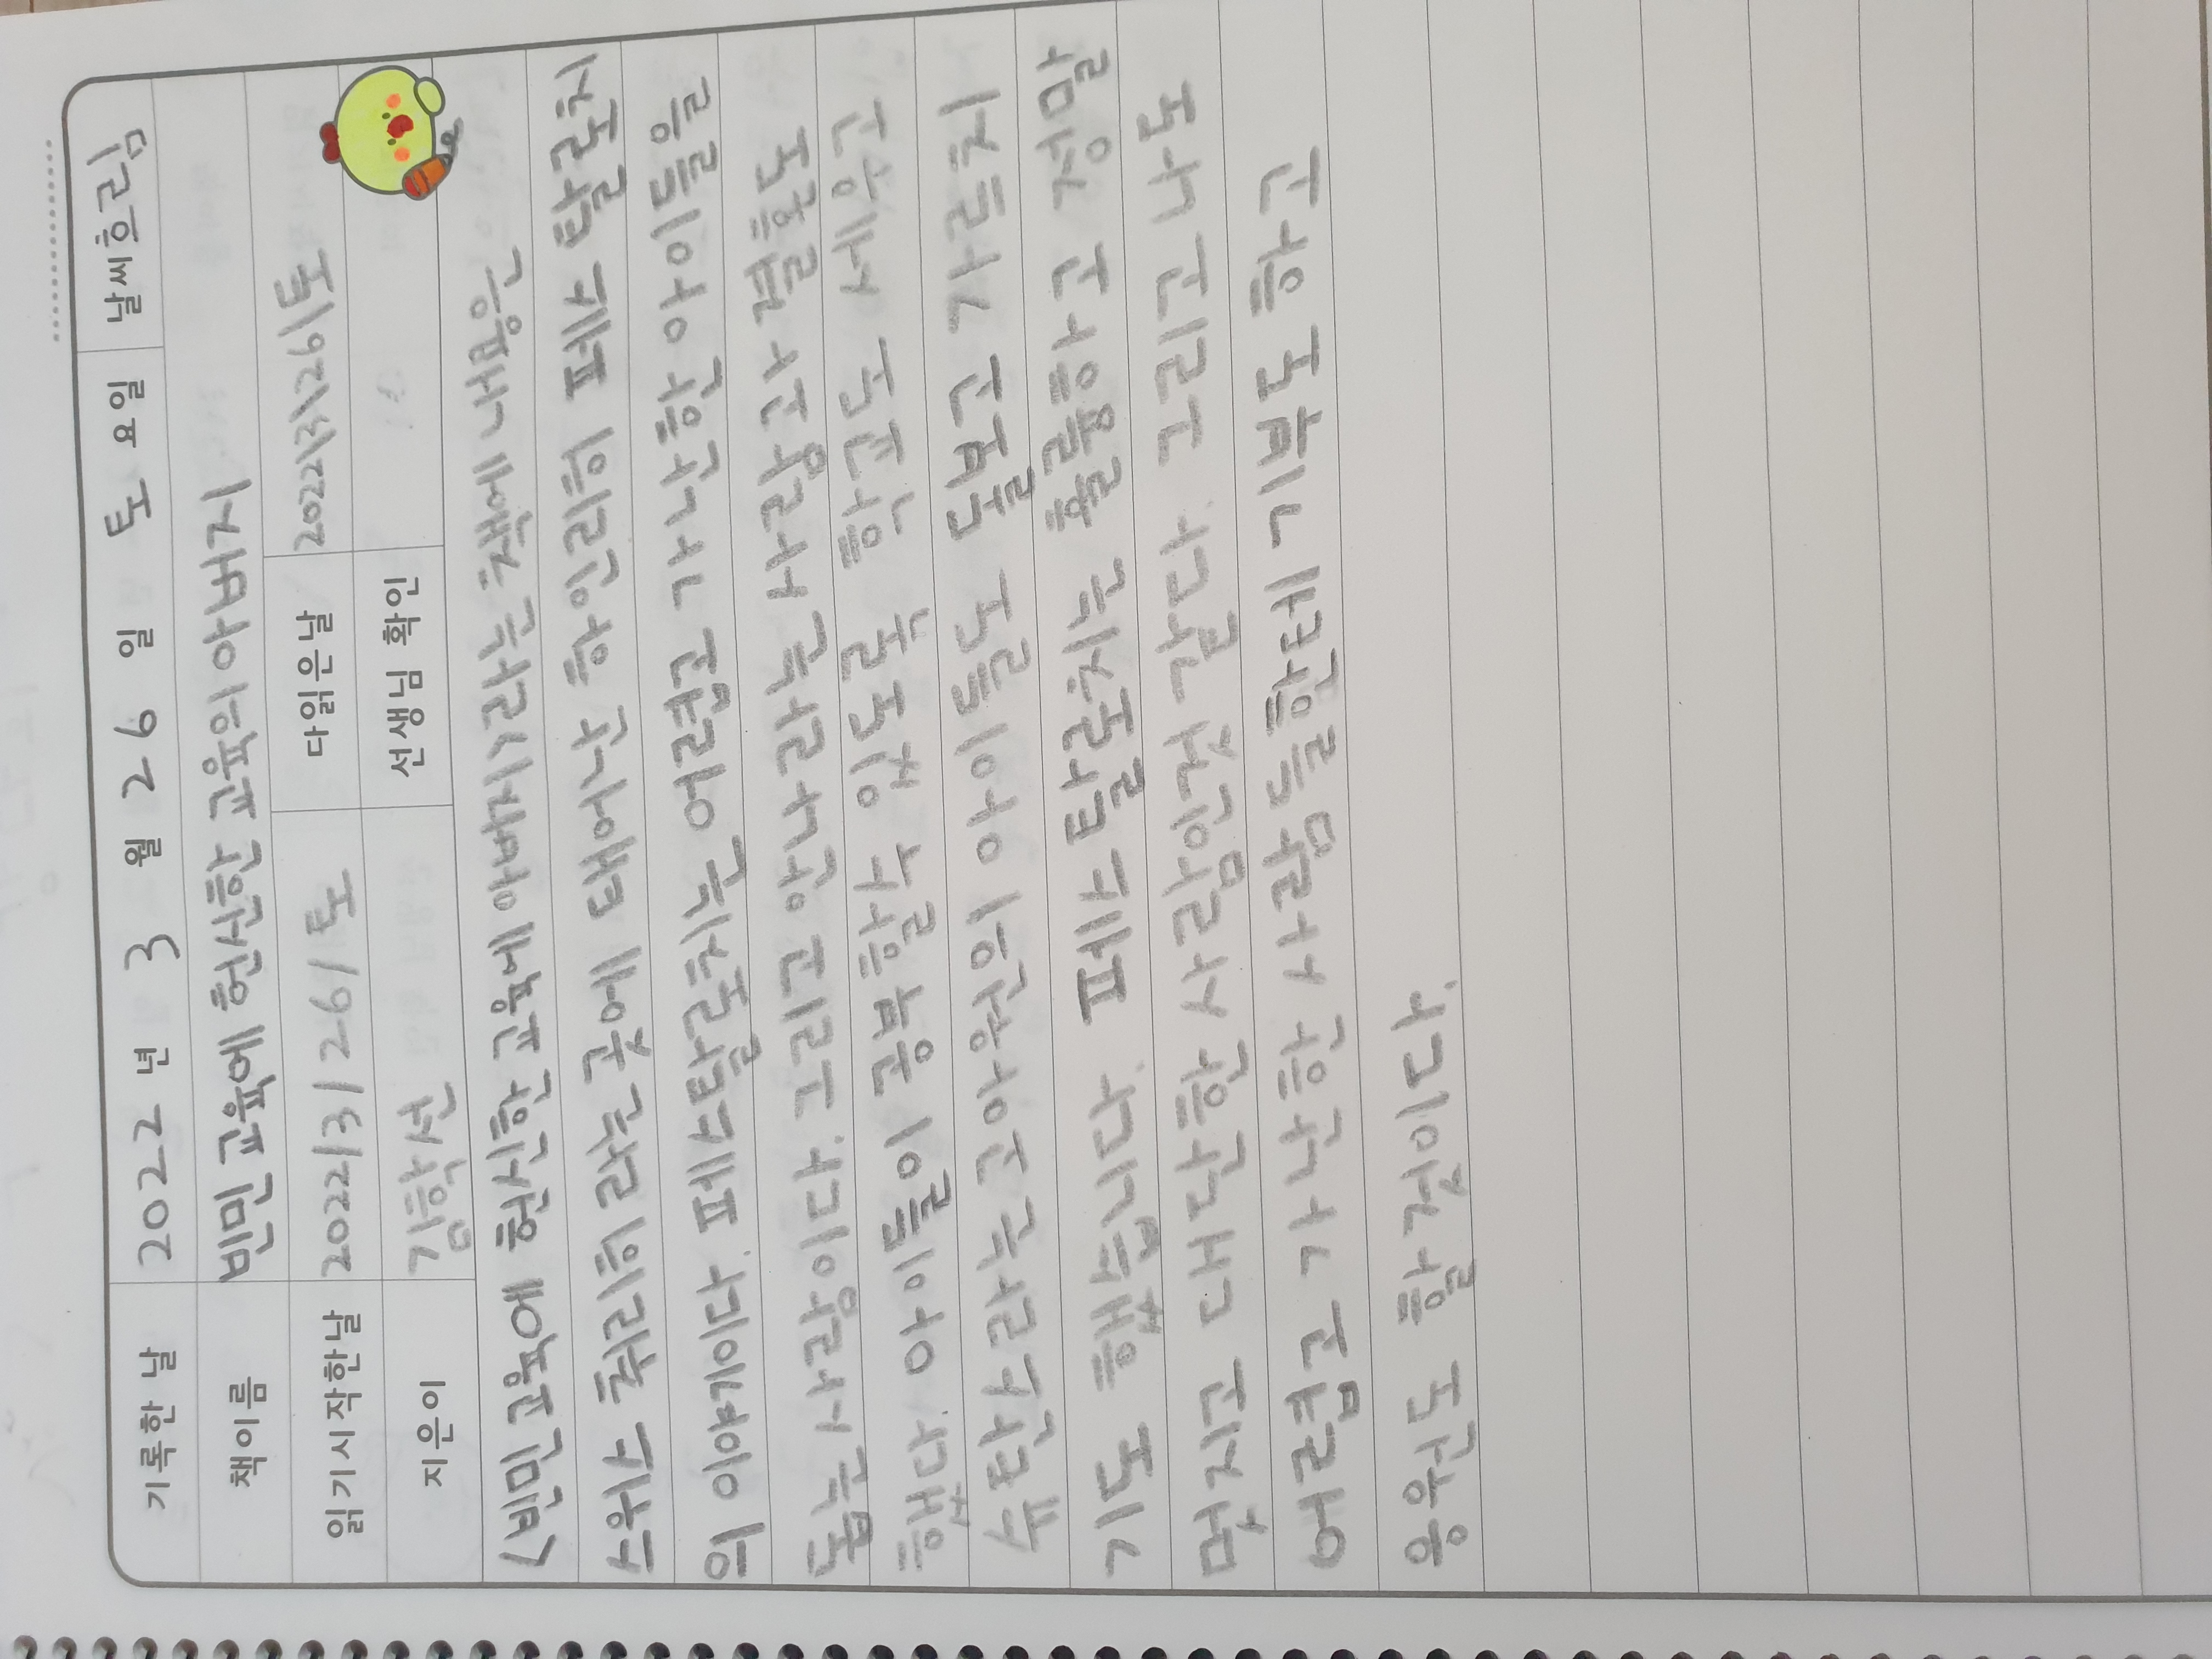 기록한 날 2022 년 3 월 26 일 토 요일 날씨 흐림
책이름 빈민 교육에 헌신한 교육의 아버지
읽기시작한날 2022/3/26/토 다읽은날 2022\3\26\토
지은이 김학선 선생님 확인
<빈민 교육에 헌신한 교육에 아버지>라는 책에 내용은
스위스 취리히 라는 곳에 태어난 하인리히 페스탈로치
의 이야기이다. 페스탈로치는 어렵고 가난한 아이들을
돕는 사람이다. 그리고 안나라는 사람과 결혼도
했다. 아이들이 공부할수 있도록 학교도 세우고
슈탄스라는 고아원의 아이들도 돌보고 가르치
기도 했습니다. 페스탈로치는 훌륭하고 정말
멋지고 대단한 사람인것 같다. 그리고 나도
어렵고 가난한 사람들한테 기부도 하고
응원도 할 것이다.